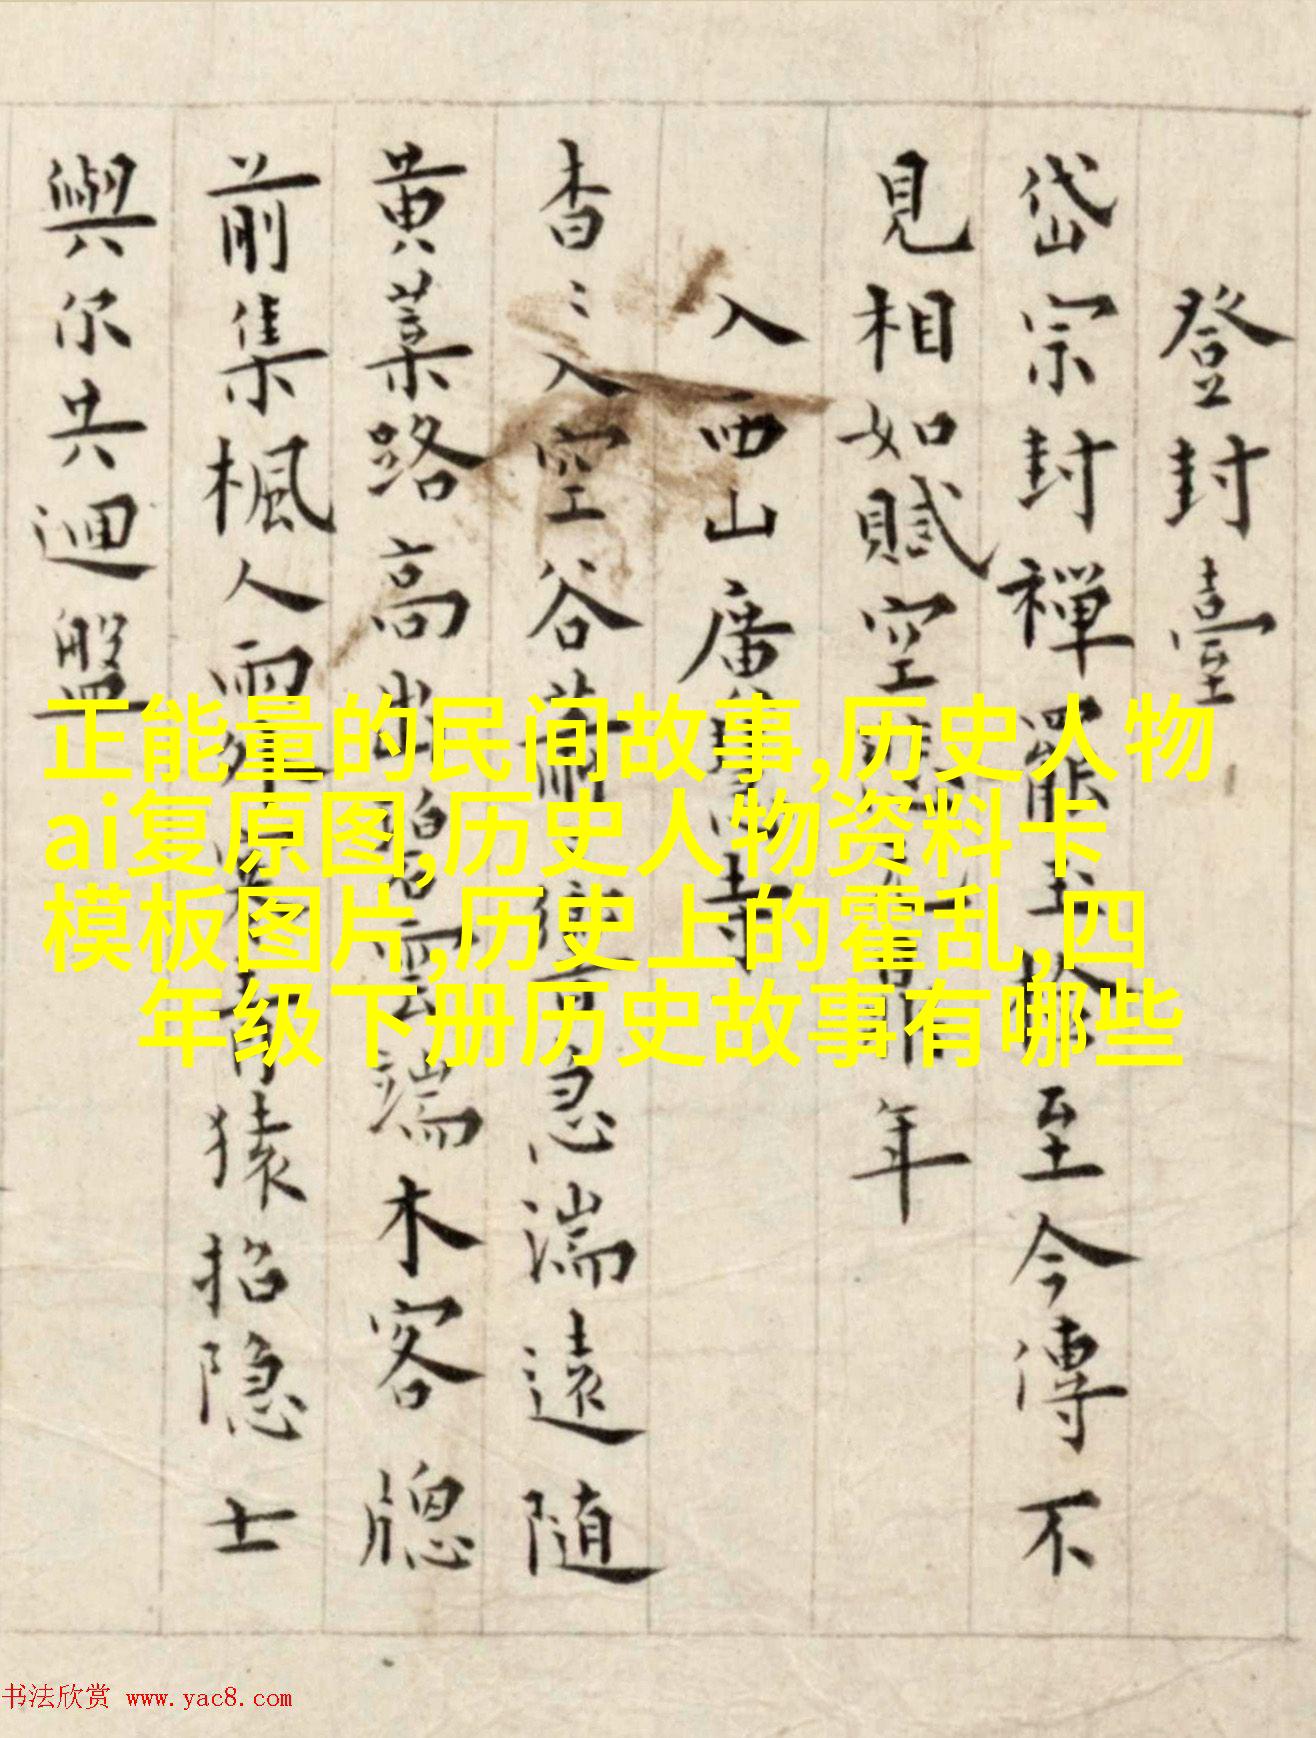 登封臺
岱宗封禪罷玉檢至今傳不
見相如賦空年
入西山廣寺
杳〻入空谷急湍遠随
黄葉路高出碧雲端木客牕
前集楓人雨猿招隐士
與尔共迴盤
正能量的民间故事,历史人物
ai复原图,历史人物资料卡
模板图片,历史上的霍乱,四
年级下册历史故事有哪些
书法欣赏 www.yac8.com